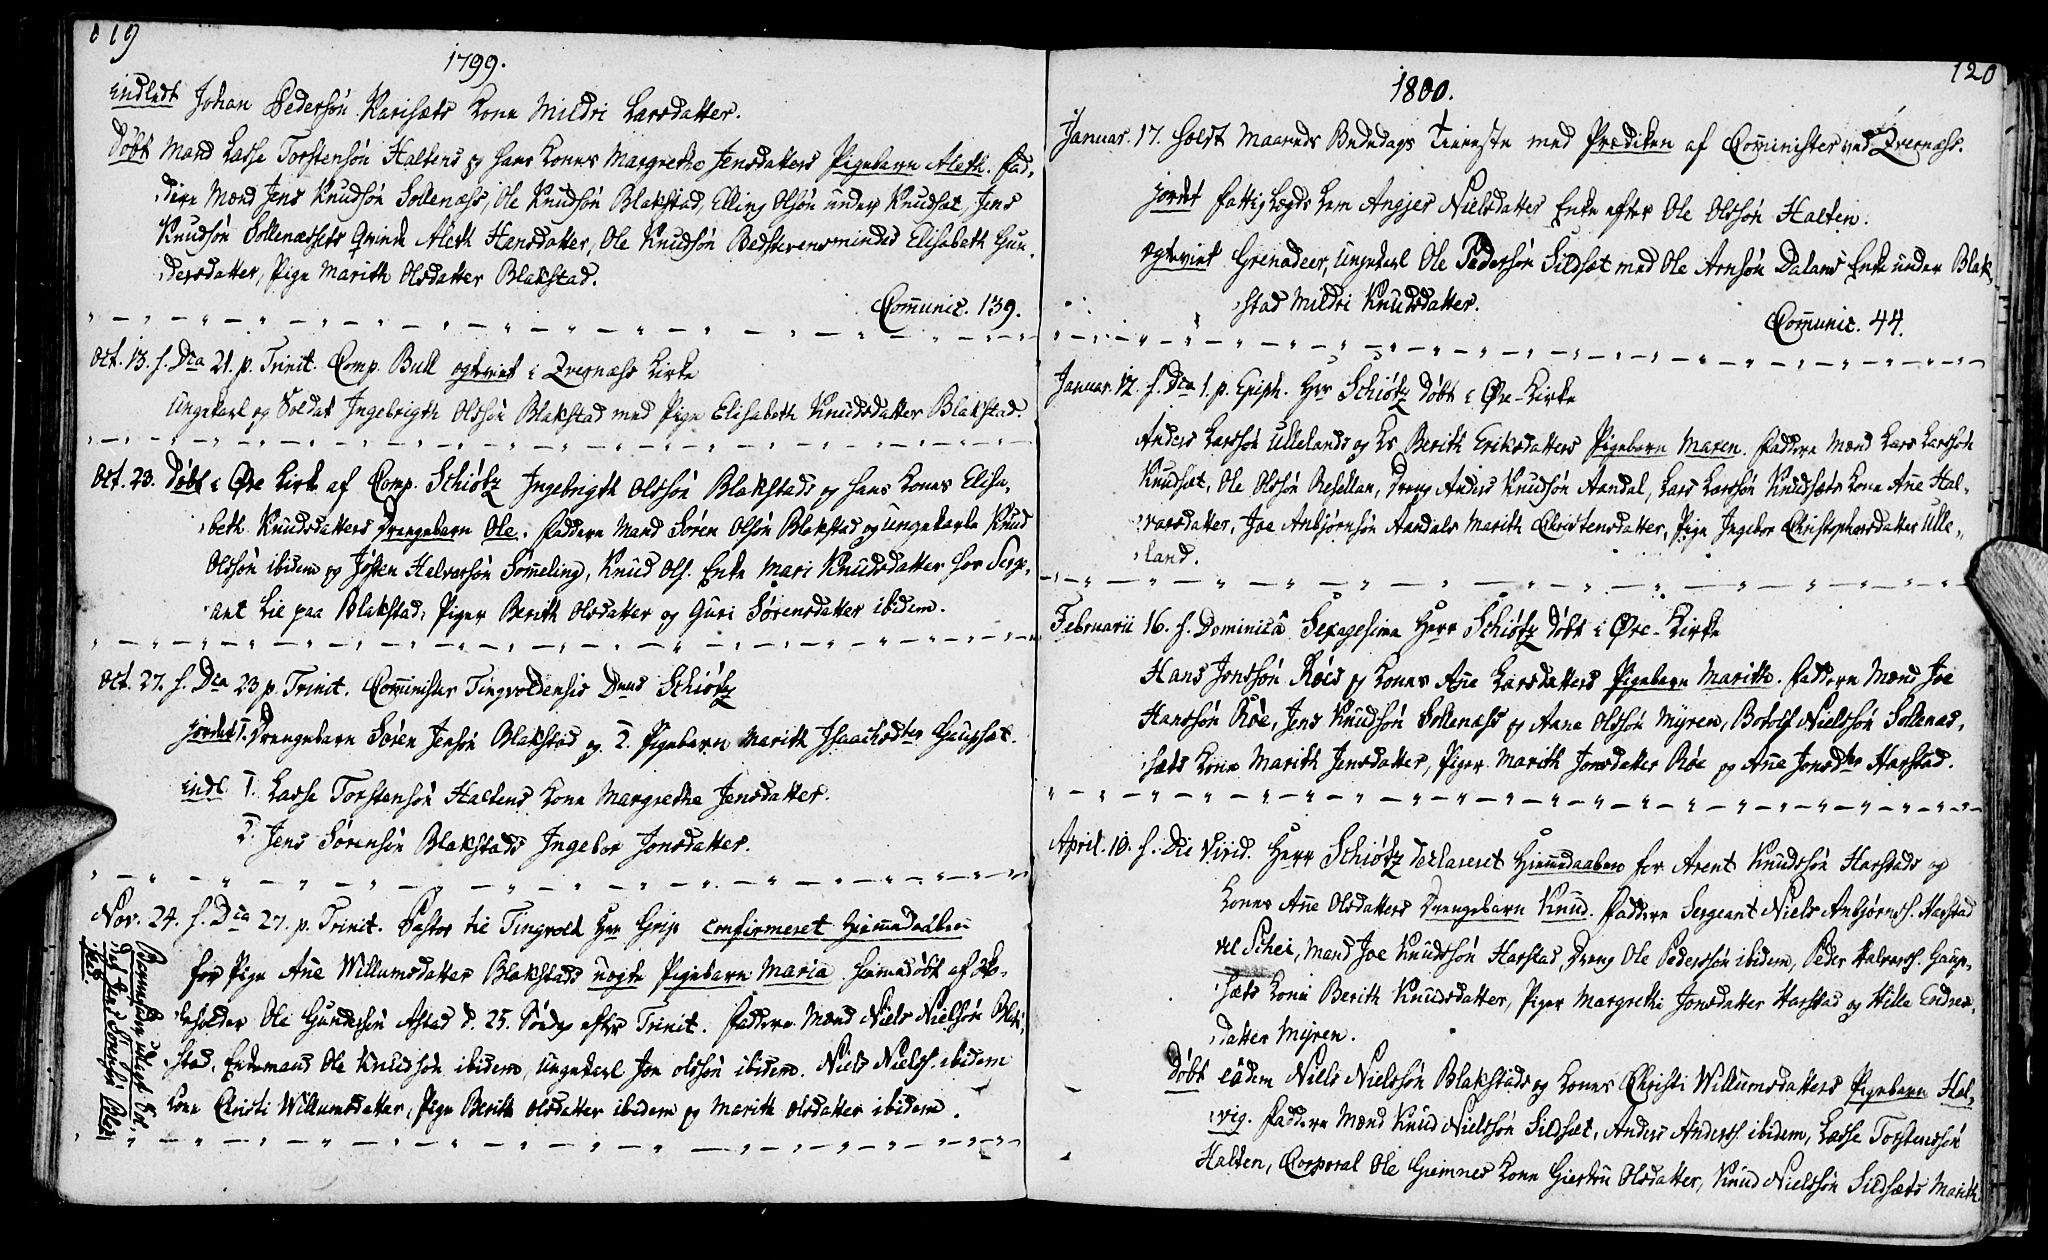 119
1799.
indledt Johan Pedersøn Karisæts Kone Mildri Larsdatter.
Døbt Mand Lasse Torstensøn Haltens og hans Kones Margrethe Jensdatters Pigebarn Aleth. Fad,
,dere Mænd Jens Knudsøn Sollenæss, Ole Knudsøn Blakstad, Elling Olsøn under Knudsæt, Jens
Knudsøn Sollenæssets Qvinde Aleth Hansdatter, Ole Knudsøn Elisabeth Gun,
,dersdatter, Pige Marith Olsdatter Blakstad.
Com̄unic. 139.
Oct. 13. f. Dca 21. p. Trinit. Comp. Bull egteviet i Qvernæs Kirke
Ungekarl og Soldat Ingebrigth Olssøn Blakstad med Pige Elisabeth Knudsdatter Blakstad.
Oct. 23. Døbt i Øre Kirke af Comp. Schiøtz Ingebrigth Olssøn Blakstads og hans Kones Elisa,
,beth Knudsdatters Drengebarn Ole. Faddere Mand Søren Olsøn Blakstad og Ungekarle Knud
Olssøn ibidem og Josten Halvorsøn Som̄eling, Knud Ols. Enke Mari Knudsdatter hos Serge,
,ant Lie paa Blakstad, Piger Berith Olsdatter og Guri Sørensdatter ibidem.
Oct. 27. f. Dca 23 p. Trinit. Com̄inister Tingvoldensis Dnus Schiøtz
jordet 1. Drengebarn Søren Jensøn Blakstad og 2. Pigebarn Marith Isaachsdter Gaupsæt.
indl 1. Lasse Torstensøn Haltens Kone Margrethe Jensdatter.
2. Jens Sørensøn Blakstads Ingebor Jonsdatter.
Nov. 24. f. Dca 27. p. Trinit. Pastor til Tingvold Hrr Grip confirmeret Hiem̄edaaben
for Pige An̄e Willumsdatter Blakstads uægte Pigebarn Maria hiemedøbt af
,holder Ole Gundersøn Astad d. 25. Søndag efter Trinit. Faddere Mænd Niels Nielsøn Blak,
,stad, Enkemand Ole Knudsøn ibidem, Ungekarl Jon Olssøn ibidem. Niels Nielss. ibidem
Kone Christi Willumsdatter, Pige Berith Olsdatter ibidem og Marith Olsdatter ibidem.
Barnefader udlagt Sol,
,dat Jens Sørensøn Blak,
,stad.
120
1800.
Januar. 17. holdt Maaneds Bededags Tieneste med Prædiken af Com̄inister ved Qvernæss.
jordet fattig Lægds Lem Angjer Nielsdatter Enke efter Ole Olssøn Halten.
egteviet Grenadeer, Ungekarl Ole Pedersøn Sildset med Ole Arnsøn Dalans Enke under Blak,
,stad Mildri Knudsdatter.
Com̄unic. 44.
Januar. 12. f. Dca 1. p. Epiph. Hrr Schiøtz døbt i Øre-Kirke
Anders Larssøn Ullelands og Ks Berith Eriksdatters Pigebarn Maren. Faddere Mænd Lars Larssøn
Knudsæt, Ole Olssøn Resellan, Dreng Anders Knudsøn Aandal, Lars Larssøn Knudsæts Kone An̄e Hal,
,vorsdatter, Joe Anbjørnsøn Aandals Marith Christensdatter, Pige Ingebor Christophersdatter Ulle,
,land.
Februarii 16. f. Dominica Sexagesima Herr Schiøtz døbt i Øre-Kirke
Hans Jonssøn Røes og Kones An̄e Larsdatters Pigebarn Marith. Faddere Mænd Joe
Hansøn Røe, Jens Knudsøn Sollenæss og Anne Olssøn Myren, Botolf Nielssøn Sollenæs,
,sæts Kone Marith Jensdatter, Piger Marith Jonsdatter Røe og An̄e Jonsdter Harstad.
April. 10. f. Die Virid. Herr Schiøtz declareret Hiem̄edaaben for Arent Knudssøn Harstads og
Kones An̄e Olsdatters Drengebarn Knud. Faddere Sergeant Niels Anbjørnss. Harstad
vel Schei, Mand Joe Knudssøn Harstad, Dreng Ole Pederssøn ibidem, Peder Halvorss. Gaup,
,sæts Kone Berith Knudsdatter, Piger Margrethe Jonsdatter Harstad og Hille Endres,
,datter Myren.
Døbt eadem Niels Nielssøn Blakstads og Kones Christi Willumsdatters Pigebarn Hal,
,vig. Faddere Mænd Knud Nielssøn Sildset, Anders Anderss. ibidem, Lasse Torstenssøn
Halten, Corporal Ole Giemnes Kone Giertru Olsdatter, Knud Nielssøn Sildsets Marith